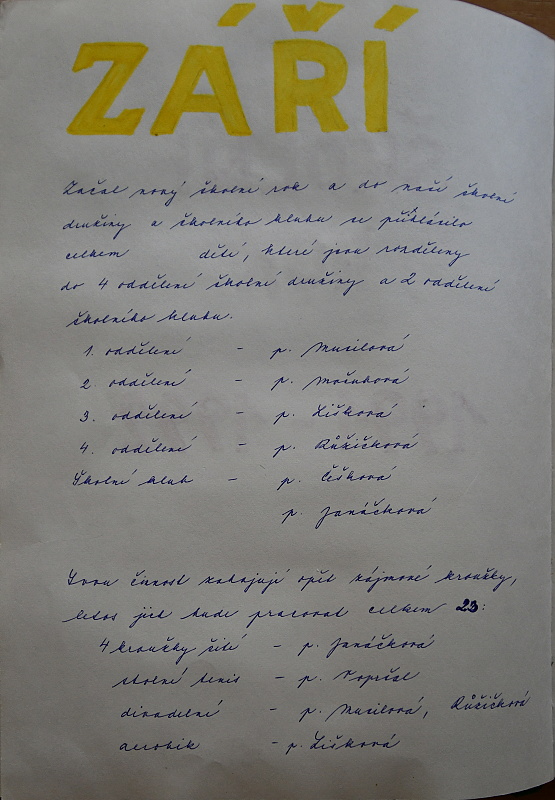 ZÁŘÍ
Začal nový školní rok a do naší školní
družiny a školního klubu se přihlásilo
celkem dětí, které jsou rozděleny
do 4 oddělení školní družiny a 2 oddělení
školního klubu.
1. oddělení - p. Musilová
2. oddělení - p.
3. oddělení - p. Lišková
4. oddělení - p. Růžičková
Školní klub - p. Čišková
p. Janáčková
Svou činnost zahajují opět zájmové kroužky,
letos jich bude pracovat celkem 23:
4 kroužky šití - p. Janáčková
stolní tenis - p. Pospíšil
divadelní - p. Musilová, Růžičková
aerobik - p. Lišková